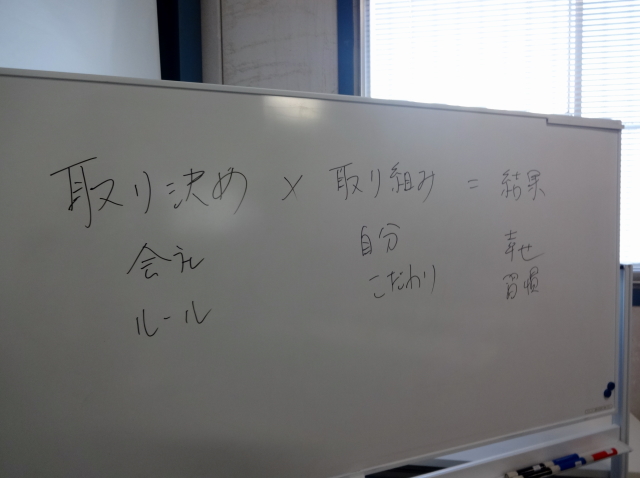 取り決め × 取り組み = 結果
会社 自分 幸せ
ルール こだわり 習慣